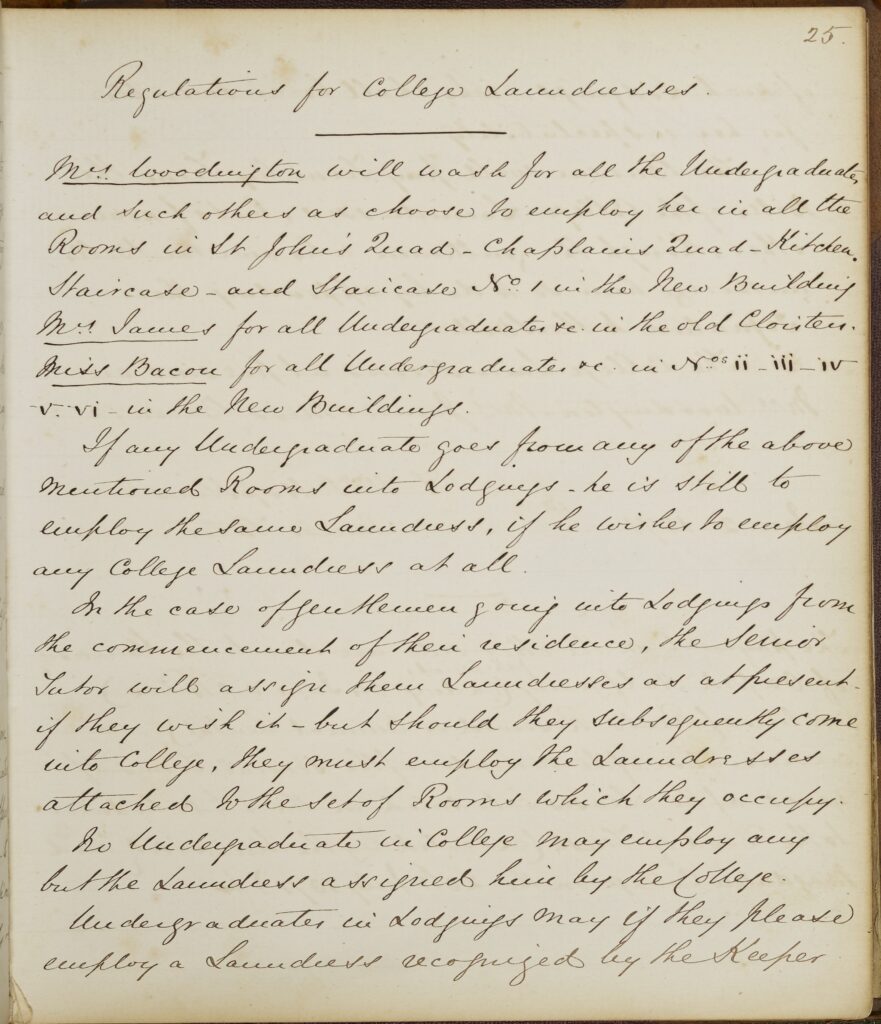 25.
Regulations for College Laundresses.
Mrs. Woodington will wash for all the Undergraduates
and such others as choose to employ her in all the
Rooms in St John's Quad - Chaplains Quad - Kitchen.
Staircase - and Staircase No. 1 in the New Building
Mrs. James for all Undergraduates &c. in the old Cloisters.
Miss Bacon for all Undergraduates &c. in Nos ii - iii - iv
v. vi - in the New Buildings.
If any Undergraduate goes from any of the above
mentioned Rooms into Lodgings - he is still to
employ the same Laundress, if he wishes to employ
any College Laundress at all.
In the case of gentlemen going into Lodgings from
the commencement of their residence, the Senior
Tutor will assign them Laundresses as at present -
if they wish it - but should they subsequently come
into College, they must employ the Laundresses
attached to the set of Rooms which they occupy.
No Undergraduate in College may employ any
but the Laundress assigned him by the College.
Undergraduates in Lodgings may if they please
employ a Laundress recognized by the Keeper